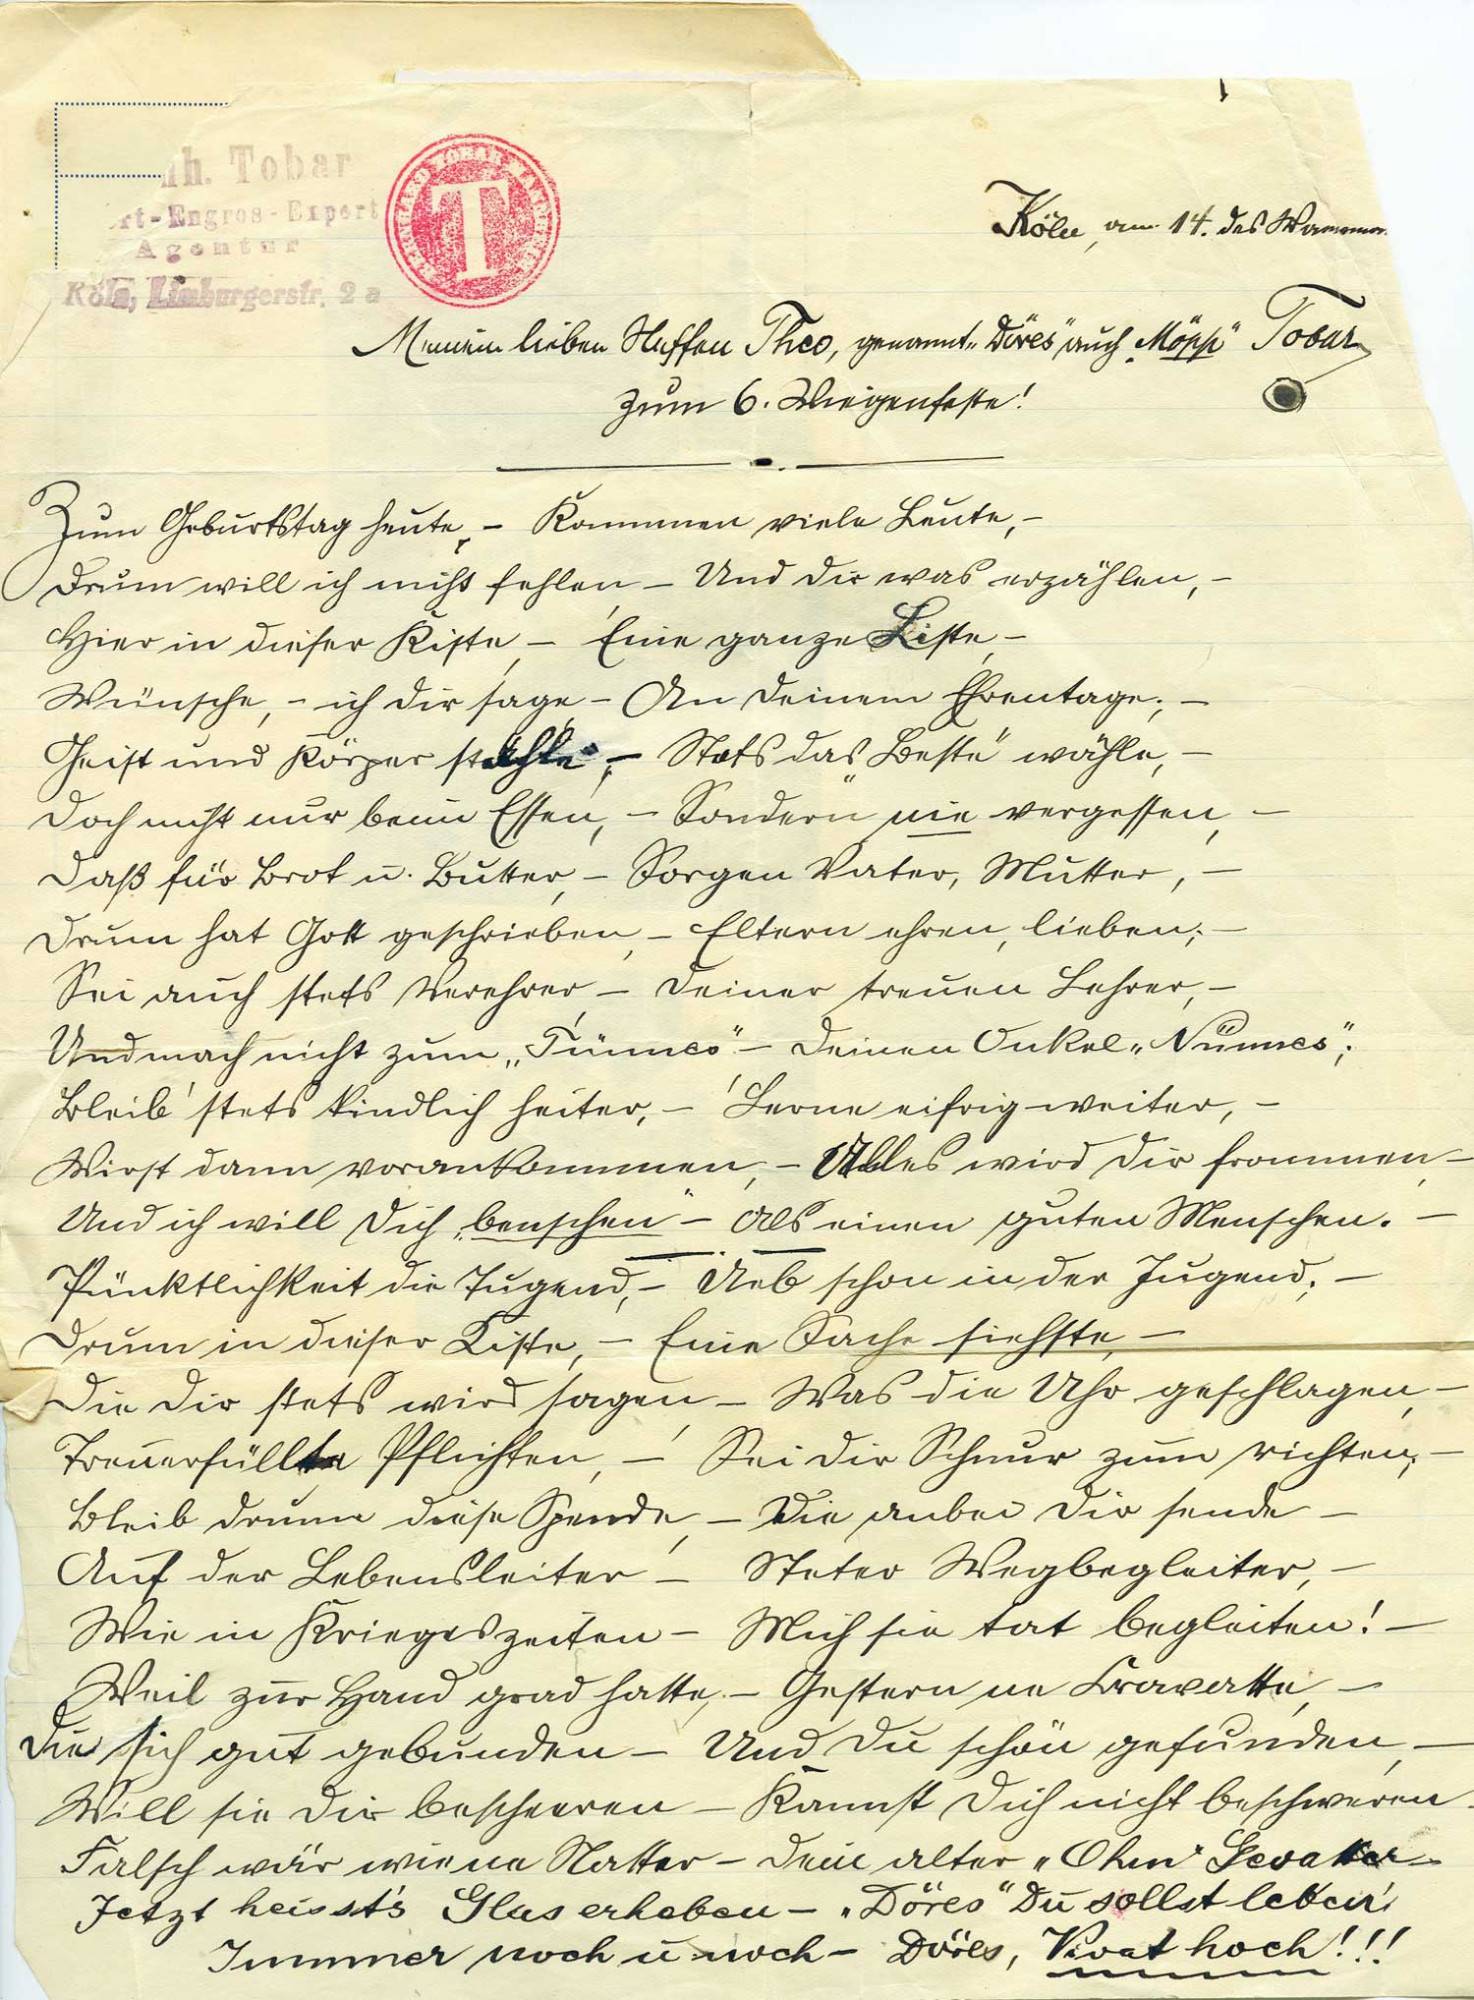 Th. Tobar
rt-Engros-Export
Agentur
Köln, Limburgerstr. 2a
TOBAR
T
Köln, am 14. des
Meinem lieben Neffen Theo, genannt „Döres" auch „Möpp" Tobar
zum 6. Wiegenfeste!
Zum Geburtstag heute, – Kommen viele Leute, –
Drum will ich nicht fehlen, – Und dir was erzählen, –
Hier in dieser Kiste, – Eine ganze Liste, –
Wünsche, – ich dir sage – An deinem Ehrentage; –
Geist und Körper stähle, – Stets das „Beste" wähle, –
Doch nicht nur beim Essen, – Sondern nie vergessen, –
Daß für Brot u. Butter, – Sorgen Vater, Mutter, –
Drum hat Gott geschrieben, – Eltern ehren, lieben; –
Sei auch stets Verehrer, – Deiner treuen Lehrer, –
Und mach nicht zum „Tünnes" – Deinen Onkel „Nünnes";
Bleib' stets kindlich heiter, – Lerne eifrig weiter, –
Wirst dann vorankommen, – Alles wird dir frommen, –
Und ich will dich „benschen" – Als einen guten Menschen. –
Pünktlichkeit die Tugend, – Ueb schon in der Jugend; –
Drum in dieser Kiste, – Eine Sache siehste, –
Die dir stets wird sagen, – Was die Uhr geschlagen, –
Treuerfüllte Pflichten, – Sei dir Schnur zum richten; –
Bleib drum diese Spende, – Die anbei dir sende –
Auf der Lebensleiter – Steter Wegbegleiter, –
Wie in Kriegeszeiten – Mich sie tat begleiten! –
Weil zur Hand grad hatte, – Gestern ne Cravatte, –
Die sich gut gebunden – Und Du schön gefunden, –
Will sie dir bescheeren – Kannst dich nicht beschweren.
Falsch wär wie ne Natter – Dein alter „Ohm" Gevatter –
Jetzt heisst's Glas erheben – „Döres" Du sollst leben!
Immer noch u noch – Döres, Vivat hoch!!!